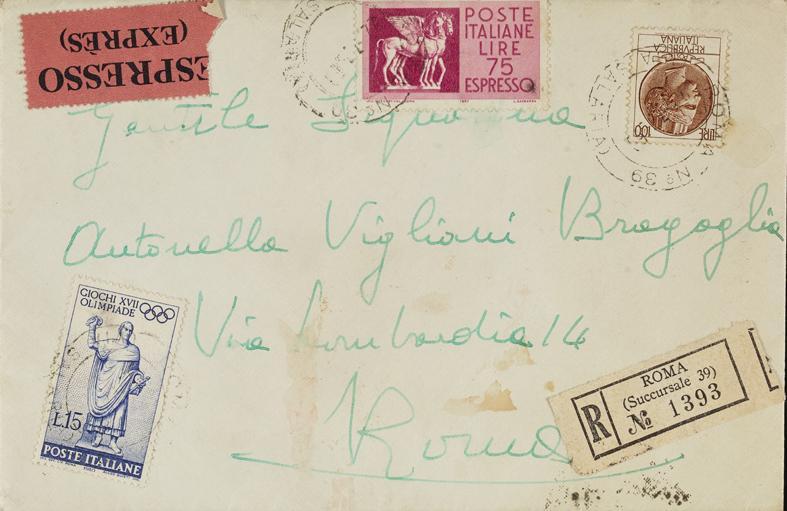 ESPRESSO
(EXPRÈS)
POSTE
ITALIANE
LIRE
75
ESPRESSO
REPVBBLICA
ITALIANA
LIRE 100
Nº 39
Gentile Signorina
Antonella Vigliani Bragaglia
Via Lombardia 14
Roma
GIOCHI XVII
OLIMPIADE
L.15
POSTE ITALIANE
R
ROMA
(Succursale 39)
Nº 1393